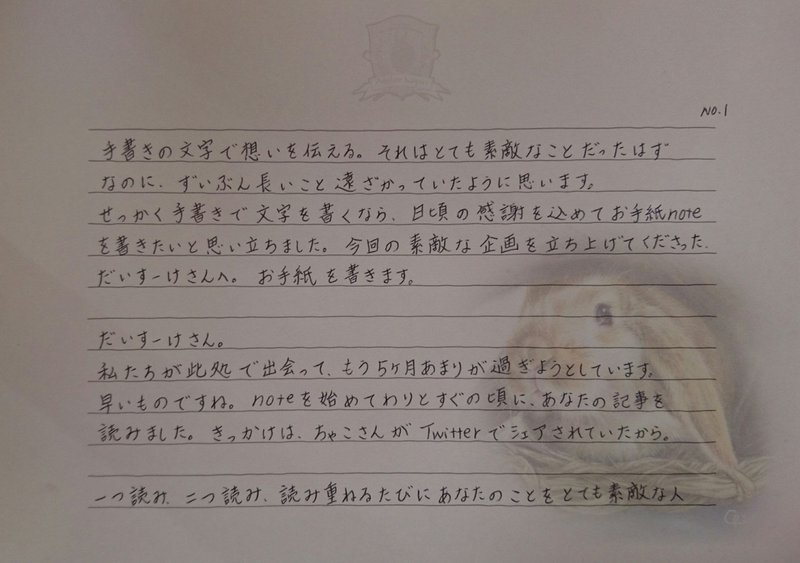 NO.1
手書きの文字で想いを伝える。それはとても素敵なことだったはず
なのに、ずいぶん長いこと遠ざかっていたように思います。
せっかく手書きで文字を書くなら、日頃の感謝を込めてお手紙note
を書きたいと思い立ちました。今回の素敵な企画を立ち上げてくださった、
だいすーけさんへ。お手紙を書きます。
だいすーけさん。
私たちが此処で出会って、もう5ヶ月あまりが過ぎようとしています。
早いものですね。noteを始めてわりとすぐの頃に、あなたの記事を
読みました。きっかけは、ちゃこさんがTwitterでシェアされていたから。
一つ読み、二つ読み、読み重ねるたびにあなたのことをとても素敵な人